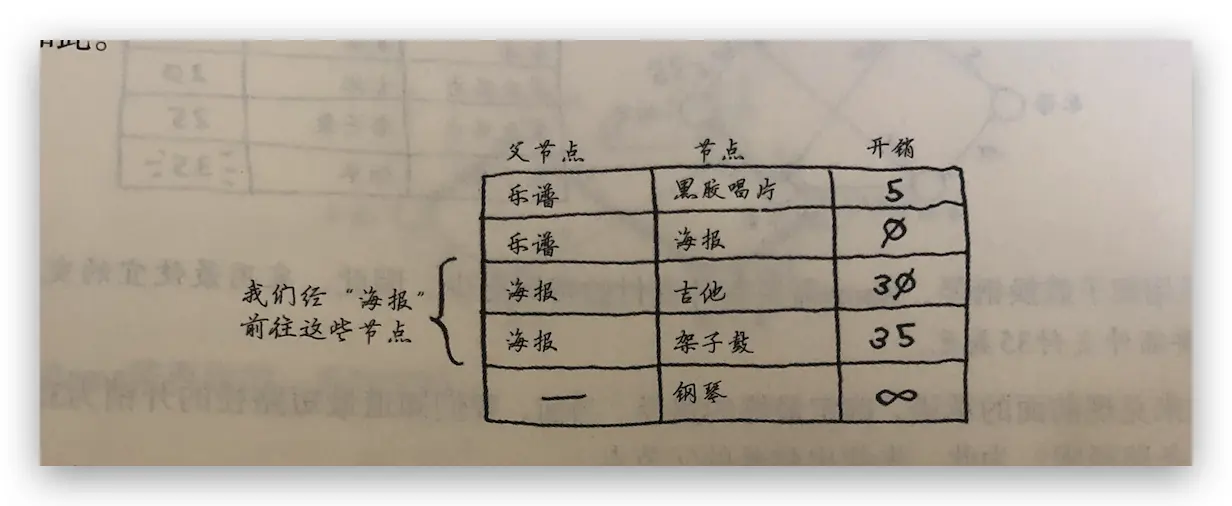 父节点 节点 开销
乐谱 黑胶唱片 5
乐谱 海报 0
海报 吉他 30
海报 架子鼓 35
— 钢琴 ∞
我们经“海报”
前往这些节点